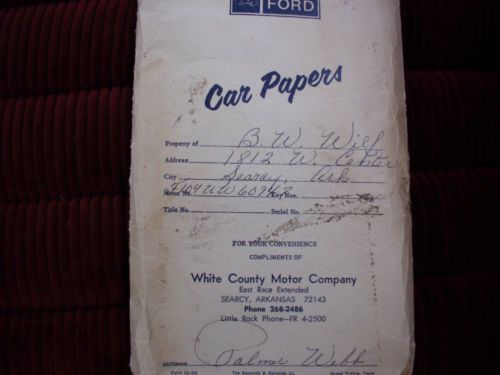 FORD
Car Papers
Property of B. W. Wilf
Address 1812 W. Center
City Searcy, Ark
Motor No. Key Nos.
Title No. Serial No.
FOR YOUR CONVENIENCE
COMPLIMENTS OF
White County Motor Company
East Race Extended
SEARCY, ARKANSAS 72143
Phone 268-2486
Little Rock Phone—FR 4-2500
SALESMAN Palmer Webb